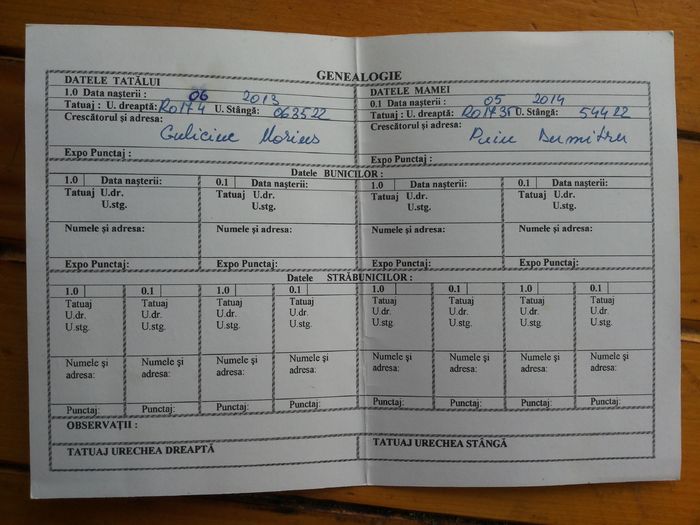 GENEALOGIE
DATELE TATĂLUI
1.0 Data nașterii : 06 2013
Tatuaj : U. dreaptă: RO174 U. Stângă: 063522
Crescătorul și adresa:
Expo Punctaj :
DATELE MAMEI
0.1 Data nașterii : 05 2014
Tatuaj : U. dreaptă: U. Stângă: 54422
Crescătorul și adresa:
Expo Punctaj :
Datele BUNICILOR :
1.0 Data nașterii: 0.1 Data nașterii: 1.0 Data nașterii: 0.1 Data nașterii:
Tatuaj U.dr. Tatuaj U.dr. Tatuaj U.dr. Tatuaj U.dr.
U.stg. U.stg. U.stg. U.stg.
Numele și adresa: Numele și adresa: Numele și adresa: Numele și adresa:
Expo Punctaj: Expo Punctaj: Expo Punctaj: Expo Punctaj:
Datele STRĂBUNICILOR :
1.0 0.1 1.0 0.1 1.0 0.1 1.0 0.1
Tatuaj Tatuaj Tatuaj Tatuaj Tatuaj Tatuaj Tatuaj Tatuaj
U.dr. U.dr. U.dr. U.dr. U.dr. U.dr. U.dr. U.dr.
U.stg. U.stg. U.stg. U.stg. U.stg. U.stg. U.stg. U.stg.
Numele și Numele și Numele și Numele și Numele și Numele și Numele și Numele și
adresa: adresa: adresa: adresa: adresa: adresa: adresa: adresa:
Punctaj: Punctaj: Punctaj: Punctaj: Punctaj: Punctaj: Punctaj: Punctaj:
OBSERVAȚII :
TATUAJ URECHEA DREAPTĂ
TATUAJ URECHEA STÂNGĂ